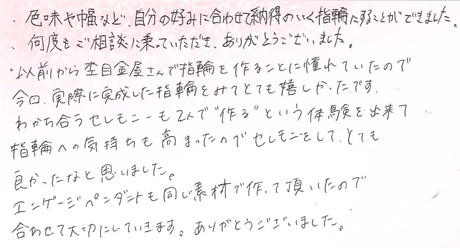 ・色味や幅など、自分の好みに合わせて納得のいく指輪にすることができました。
・何度もご相談に乗っていただき、ありがとうございました。
・以前から杢目金屋さんで指輪を作ることに憧れていたので
今回、実際に完成した指輪をみてとても嬉しかったです。
わかち合うセレモニーも2人で“作る”という体験を出来て
指輪への気持ちも高まったのでセレモニーをして、とても
良かったなと思いました。
エンゲージペンダントも同じ素材で作って頂いたので
合わせて大切にしていきます。ありがとうございました。